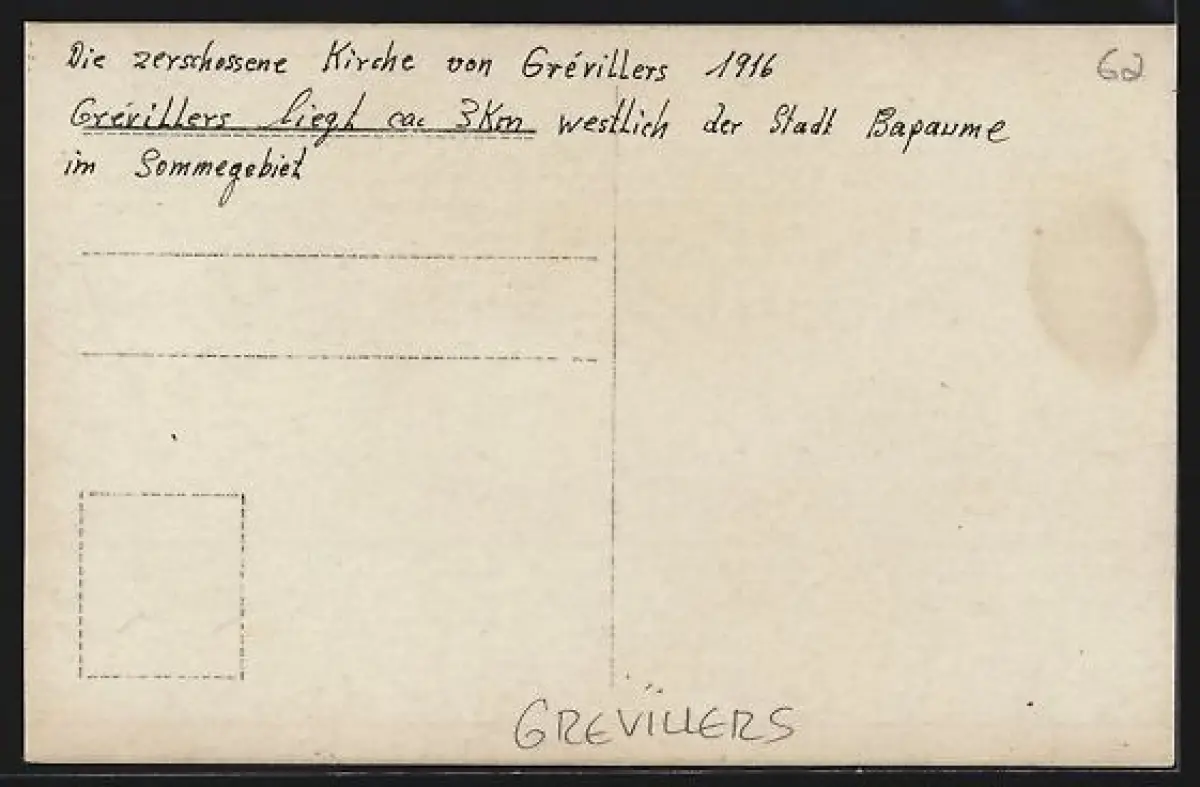 Die zerschossene Kirche von Grévillers 1916
62
Grévillers liegt ca. 3Km westlich der Stadt Bapaume
im Sommegebiet
GREVILLERS